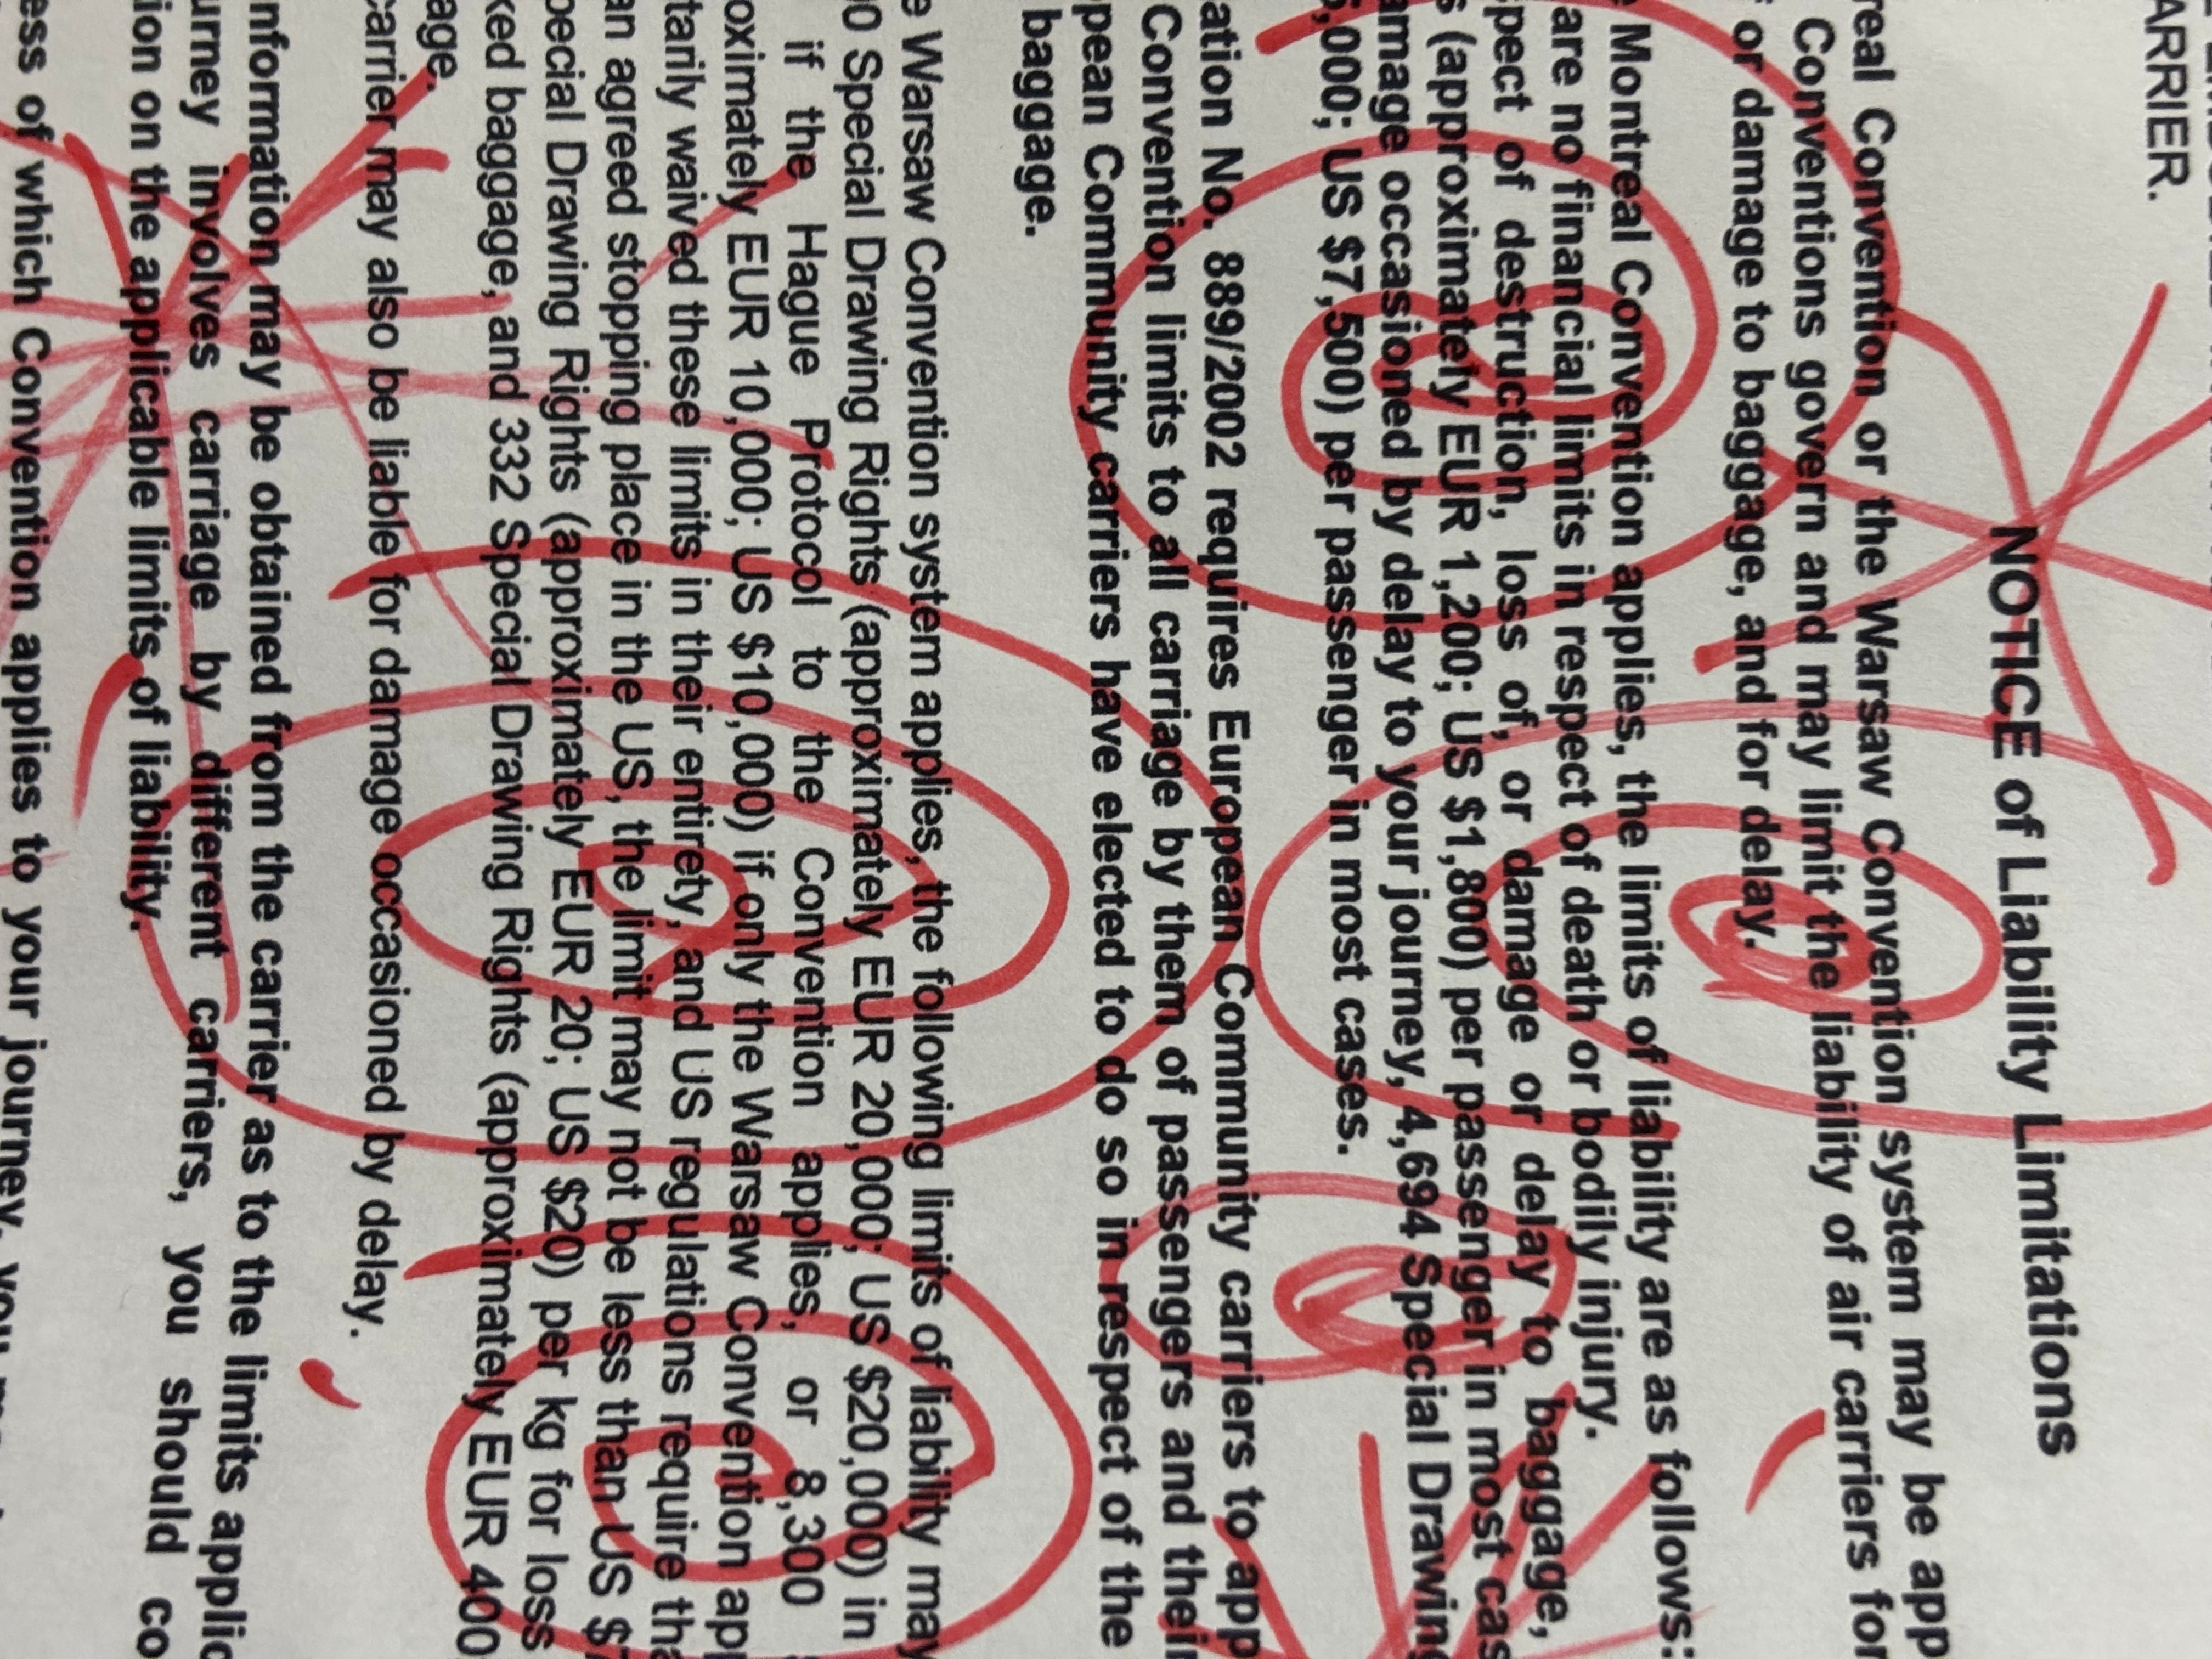 ARRIER.
NOTICE of Liability Limitations
real Convention or the Warsaw Convention system may be app
Conventions govern and may limit the liability of air carriers for
or damage to baggage, and for delay.
Montreal Convention applies, the limits of liability are as follows:
are no financial limits in respect of death or bodily injury.
spect of destruction, loss of, or damage or delay to baggage,
s (approximately EUR 1,200; US $1,800) per passenger in most cas
amage occasioned by delay to your journey, 4,694 Special Drawing
5,000; US $7,500) per passenger in most cases.
ation No. 889/2002 requires European Community carriers to app
Convention limits to all carriage by them of passengers and their
pean Community carriers have elected to do so in respect of the
baggage.
e Warsaw Convention system applies, the following limits of liability may
00 Special Drawing Rights (approximately EUR 20,000; US $20,000) in
if the Hague Protocol to the Convention applies, or 8,300
oximately EUR 10,000; US $10,000) if only the Warsaw Convention app
tarily waived these limits in their entirety, and US regulations require tha
an agreed stopping place in the US, the limit may not be less than US $
pecial Drawing Rights (approximately EUR 20; US $20) per kg for loss
ked baggage, and 332 Special Drawing Rights (approximately EUR 400
age.
carrier may also be liable for damage occasioned by delay.
nformation may be obtained from the carrier as to the limits applic
urney involves carriage by different carriers, you should co
ion on the applicable limits of liability.
ess of which Convention applies to your journey,